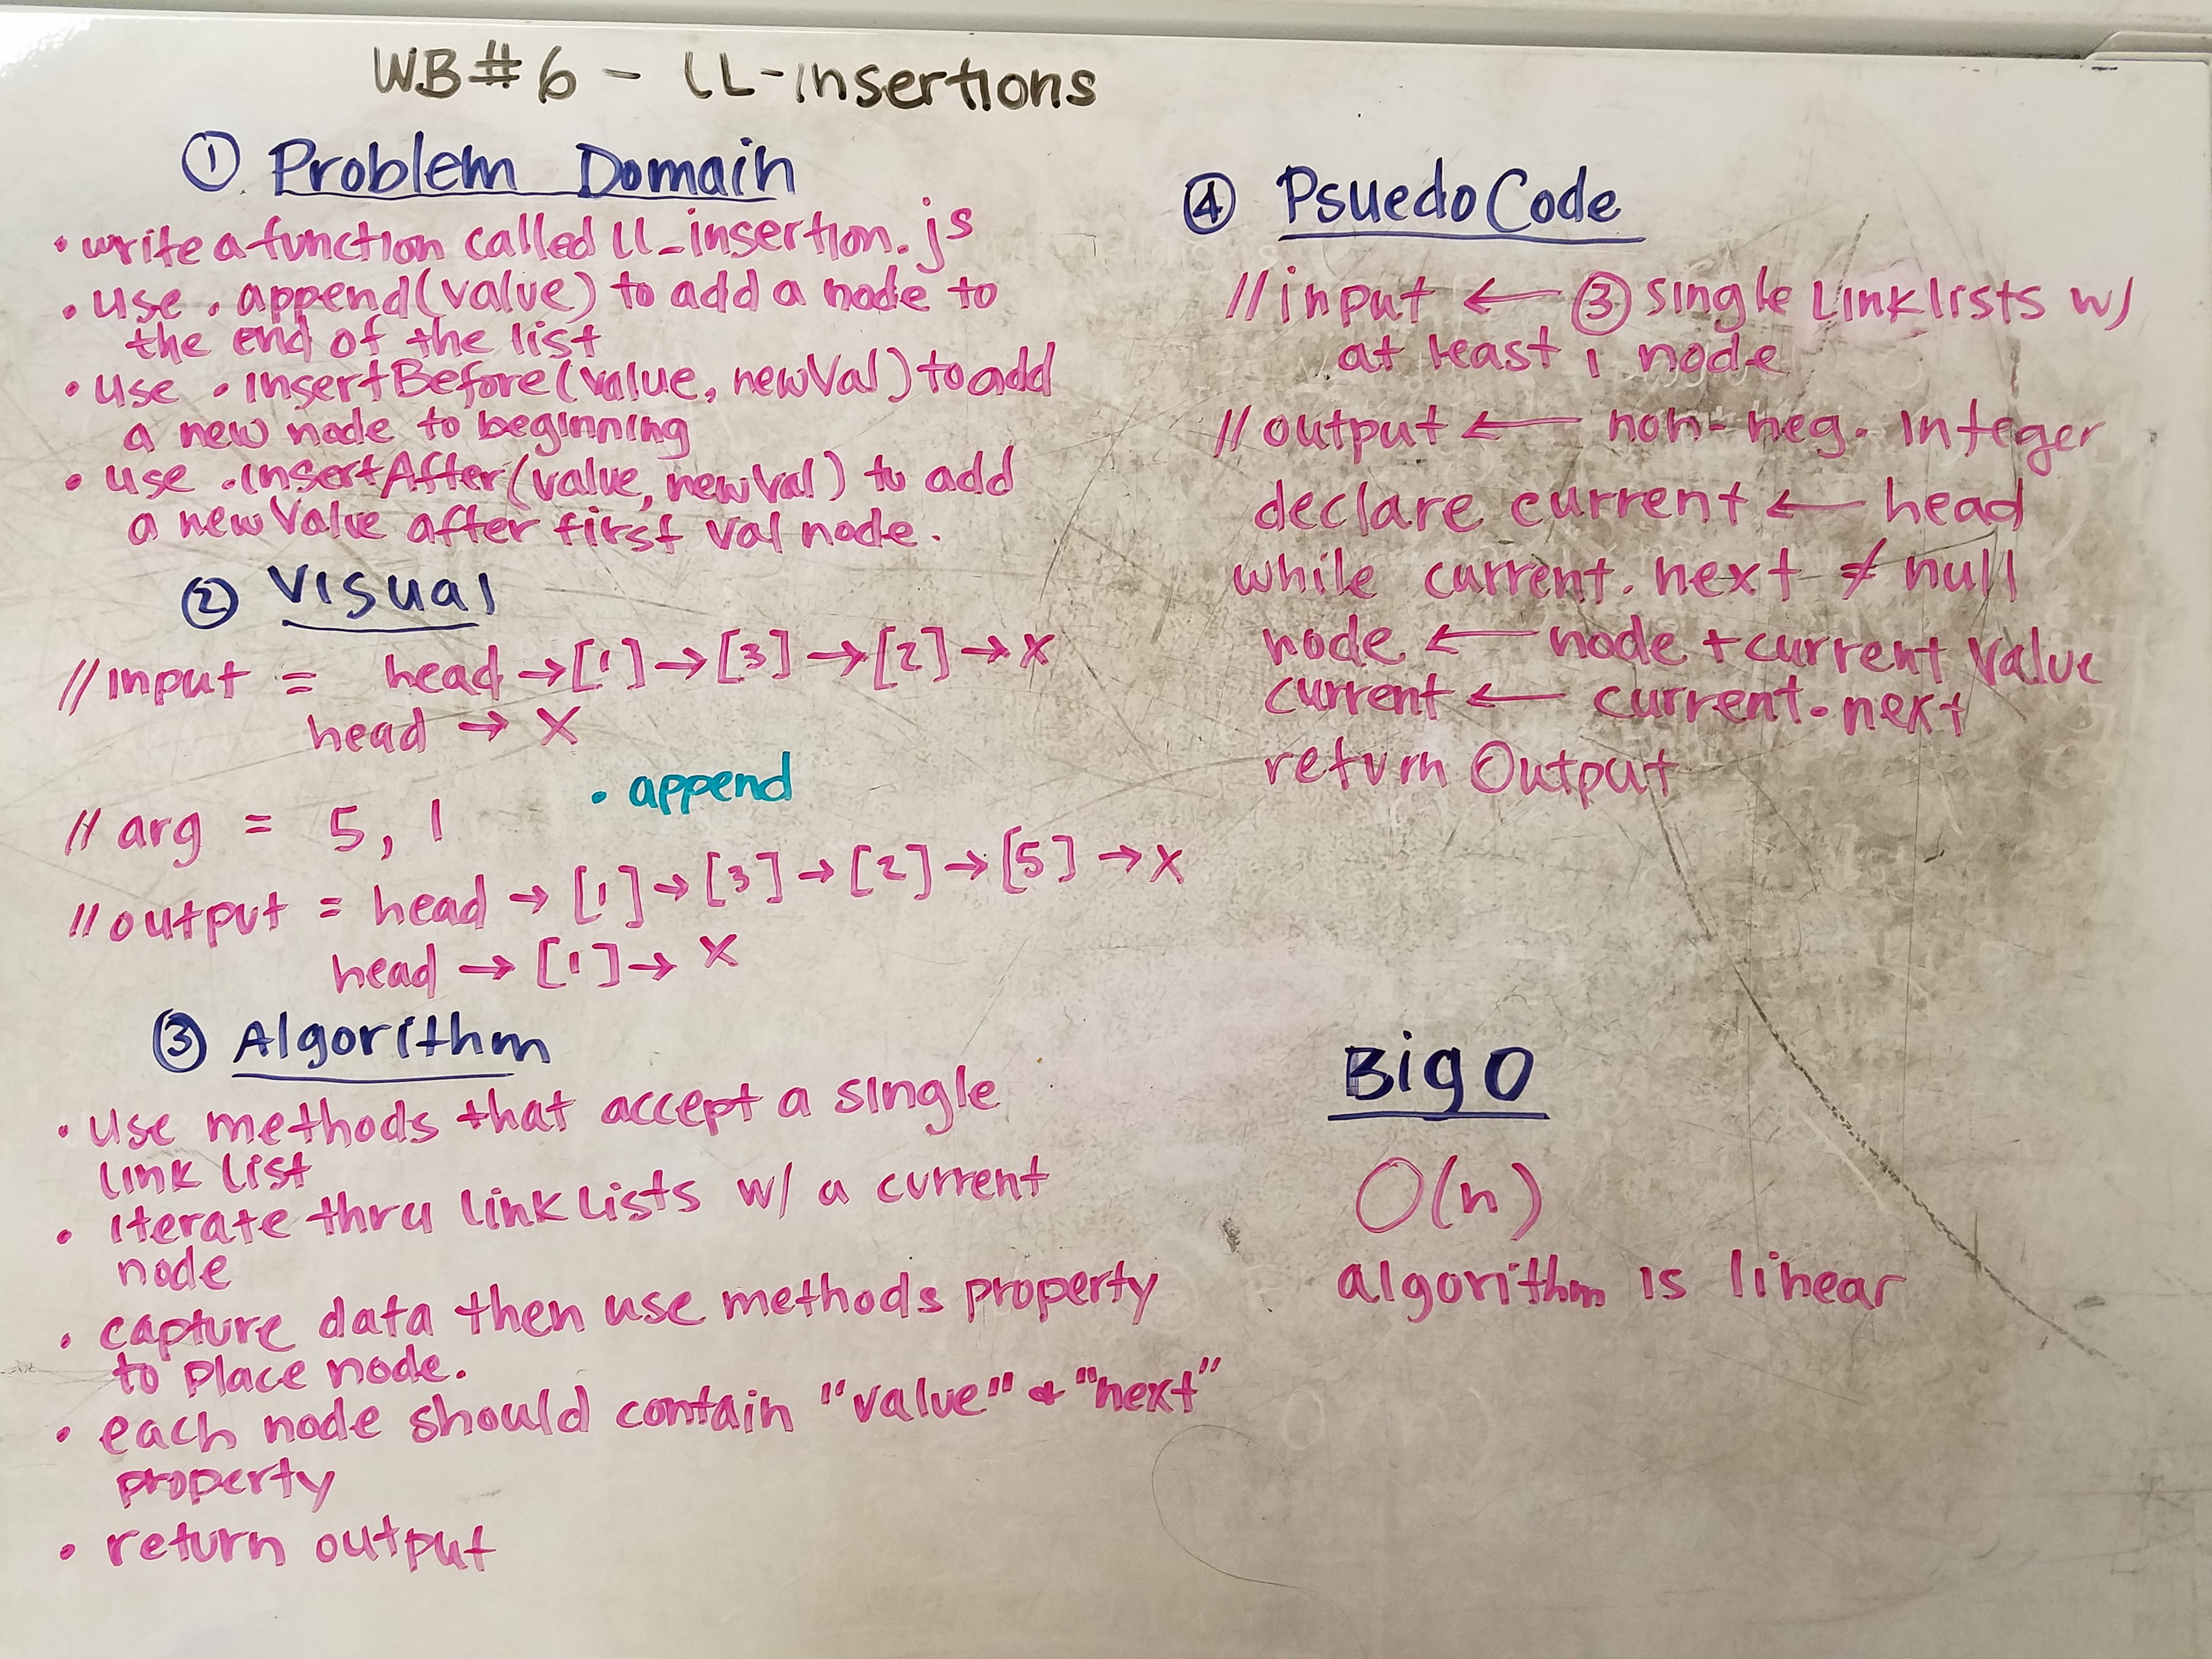 WB#6 - LL-Insertions
① Problem Domain
• write a function called ll_insertion.js
• use .append(value) to add a node to
the end of the list
• use .InsertBefore(value, newVal) to add
a new node to beginning
• use .InsertAfter(value, newVal) to add
a new Value after first val node.
② Visual
// input = head → [1] → [3] → [2] → X
head → X
.append
// arg = 5, 1
// output = head → [1] → [3] → [2] → [5] → X
head → [1] → X
③ Algorithm
• use methods that accept a single
link list
• iterate thru link lists w/ a current
node
• capture data then use methods property
to place node.
• each node should contain "value" & "next"
property
• return output
④ PsuedoCode
// input ← ③ single Linklists w/
at least 1 node
// output ← non-neg. Integer
declare current ← head
while current.next ≠ null
node ← node + current Value
current ← current.next
return Output
Big O
O(n)
algorithm is linear